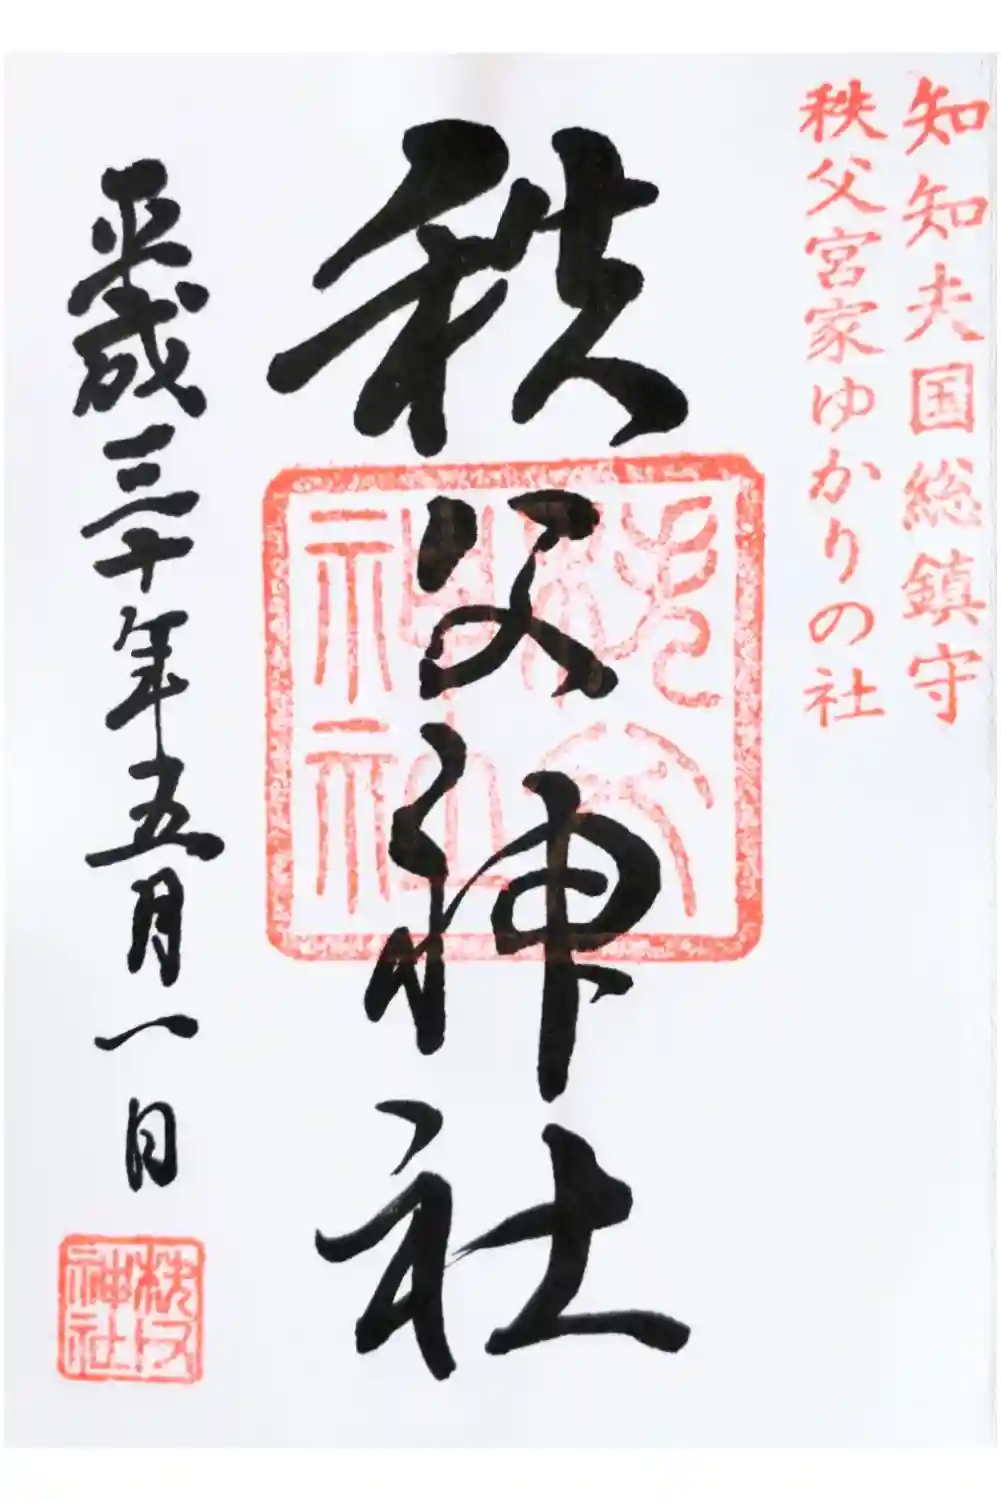 知知夫国総鎮守
秩父宮家ゆかりの社
秩父神社
秩父神社
平成三十年五月一日
秩父神社